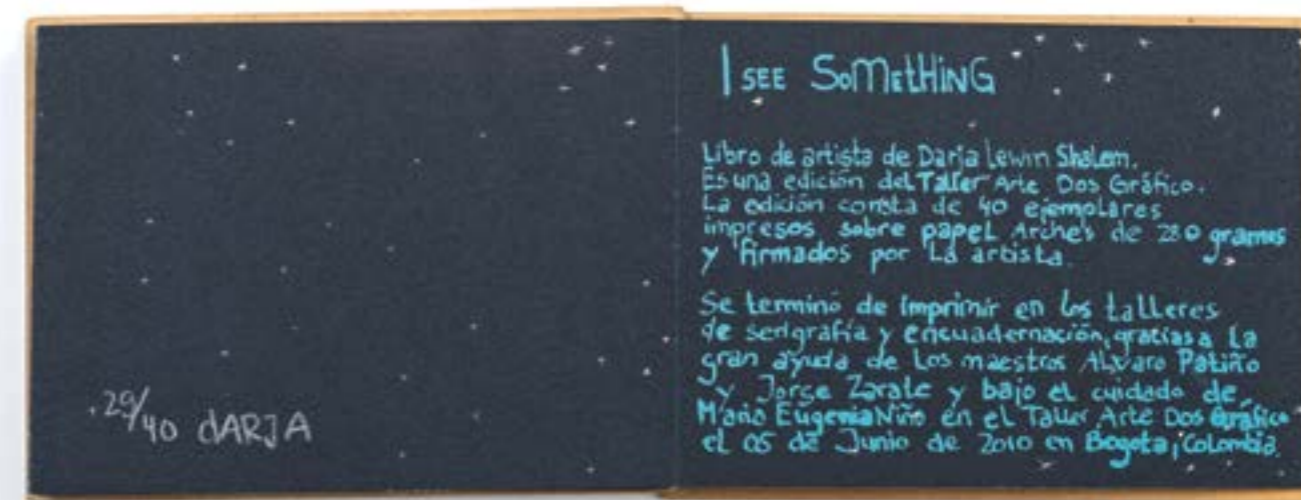 29/40 dARJA
I SEE SoMEtHiNG
Libro de artista de Darja Lewin Shalem.
Es una edición del Taller Arte Dos Gráfico.
La edición consta de 40 ejemplares
impresos sobre papel Arches de 280 gramos
y firmados por La artista.
Se terminó de imprimir en los talleres
de serigrafía y encuadernación, gracias a la
gran ayuda de Los maestros Alvaro Patiño
y Jorge Zarate y bajo el cuidado de
María Eugenia Niño en el Taller Arte Dos Gráfico
el 05 de Junio de 2010 en Bogota, Colombia.